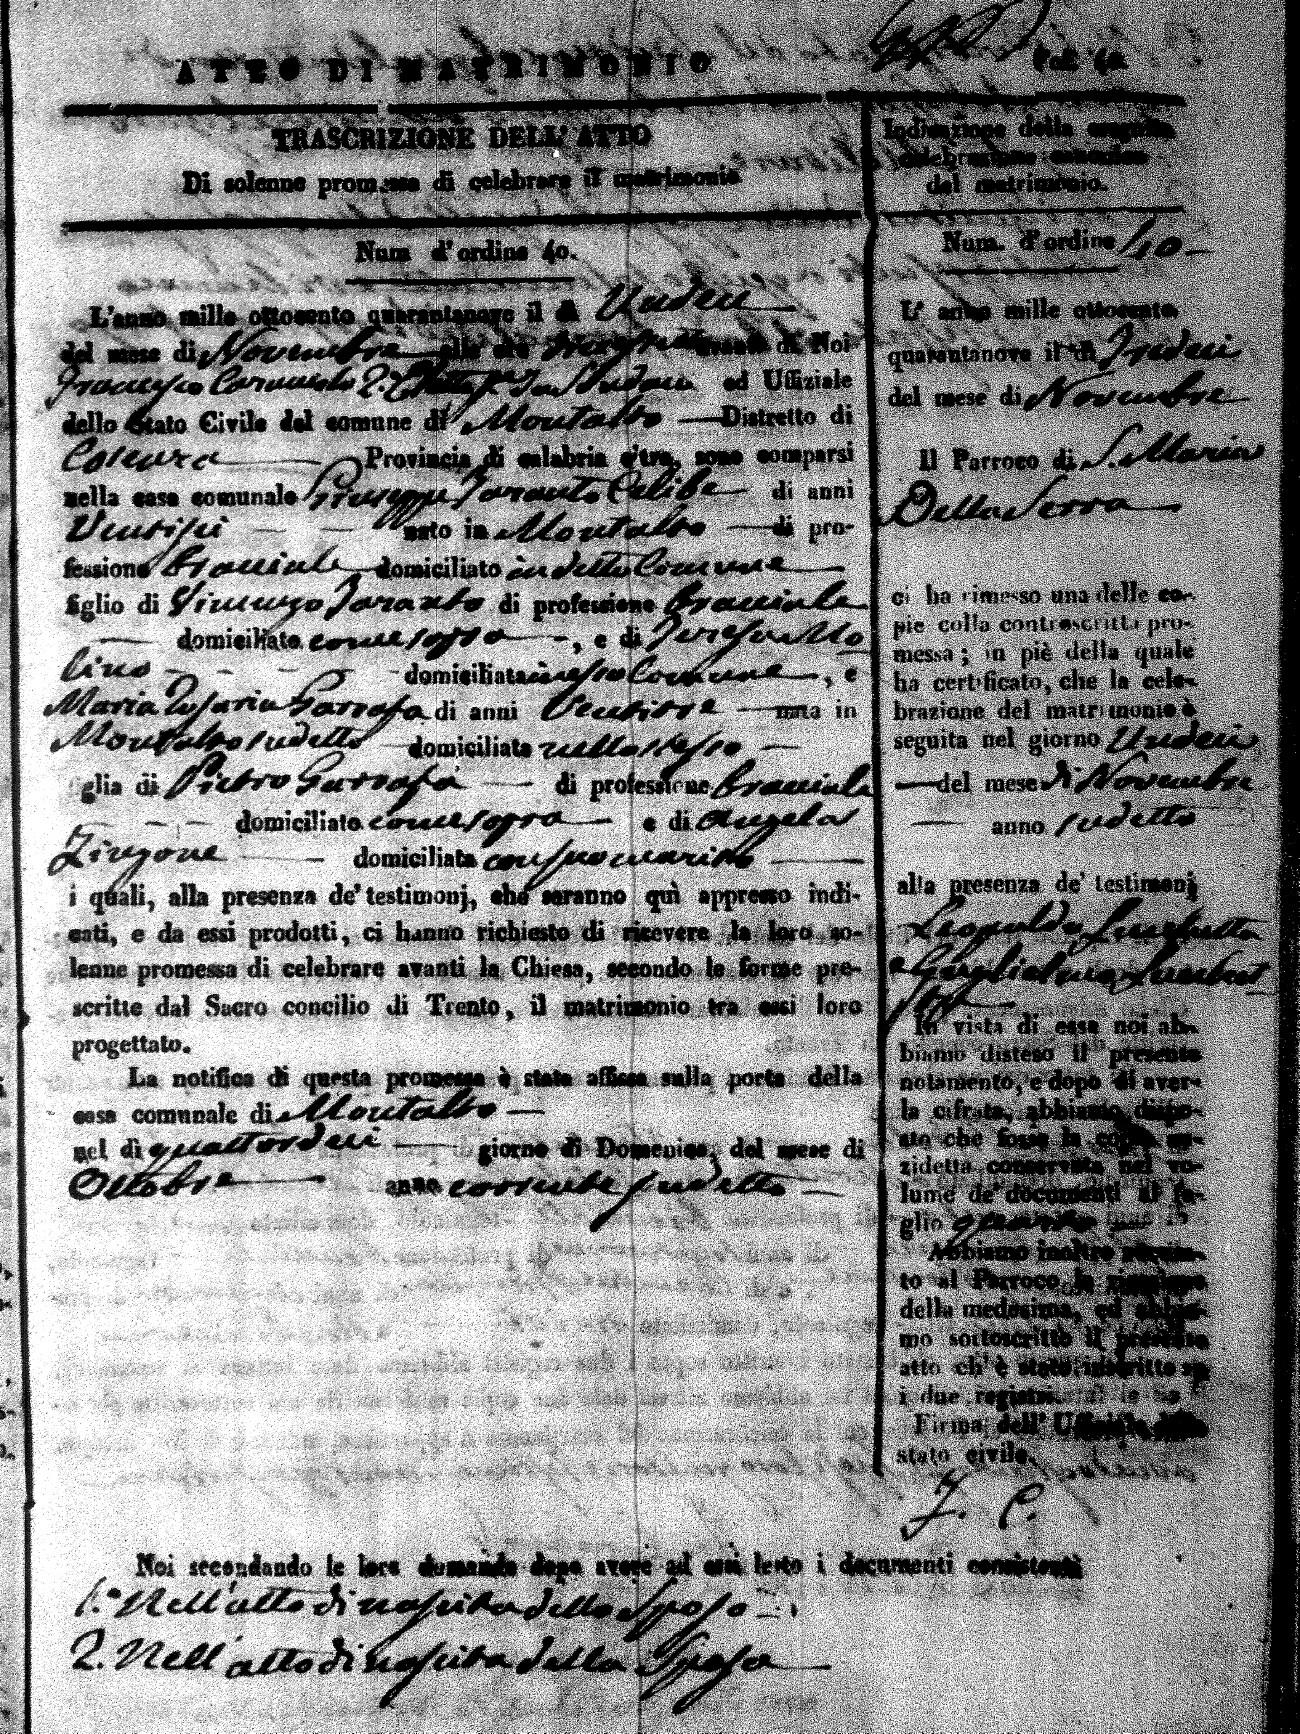 ATTO DI MATRIMONIO
TRASCRIZIONE DELL' ATTO
Di solenne promessa di celebrare il matrimonio
Num d'ordine 40.
L'anno mille ottocento quarantanove il dì Undeci
del mese di Novembre alle ore avanti di Noi
Francesco ed Uffiziale
dello Stato Civile del comune di Montalto Distretto di
Cosenza Provincia di calabria c'tra, sono comparsi
nella casa comunale Giuseppe Taranto Celibe di anni
Ventisei nato in Montalto di pro-
fessione Bracciale domiciliato in detto Comune
figlio di Vincenzo Taranto di professione Bracciale
domiciliato come sopra, e di Teresa Mo
lino domiciliata in esso Comune, e
Maria Garrafa di anni nata in
Montalto sudetto domiciliata nello stesso
glia di Pietro Garrafa di professione Bracciale
domiciliato come sopra e di Angela
domiciliata con suo marito
i quali, alla presenza de' testimonj, che saranno quì appresso indi-
cati, e da essi prodotti, ci hanno richiesto di ricevere la loro so-
lenne promessa di celebrare avanti la Chiesa, secondo le forme pre-
scritte dal Sacro concilio di Trento, il matrimonio tra essi loro
progettato.
La notifica di questa promessa è stata affissa sulla porta della
casa comunale di Montalto
nel dì quattordeci giorno di Domenica, del mese di
Ottobre anno corrente sudetto
Indicazione della seguita
celebrazione canonica
del matrimonio.
Num. d'ordine 40.
L' anno mille ottocento
quarantanove il dì Undeci
del mese di Novembre
Il Parroco di S. Maria
Della Serra
ci ha rimesso una delle co-
pie colla controscritta pro-
messa; in piè della quale
ha certificato, che la cele-
brazione del matrimonio è
seguita nel giorno Undeci
del mese di Novembre
anno sudetto
alla presenza de' testimonj
Leopoldo
e Guglielmo
In vista di essa noi ab-
biamo disteso il presente
notamento, e dopo di aver-
la cifrata, abbiamo dispo-
sto che fosse la copia su-
zidetta conservata nel vo-
lume de' documenti al fo-
glio quarto
Abbiamo inoltre accusa-
to al Parroco la ricezione
della medesima, ed abbia-
mo sottoscritto il presente
atto ch' è stato inscritto su
i due registri.
Firma dell' Uffiziale dello
stato civile.
F. C.
Noi secondando le loro domande dopo avere ad essi letto i documenti consistenti
1.° Nell'atto di nascita dello Sposo
2. Nell'atto di nascita della Sposa